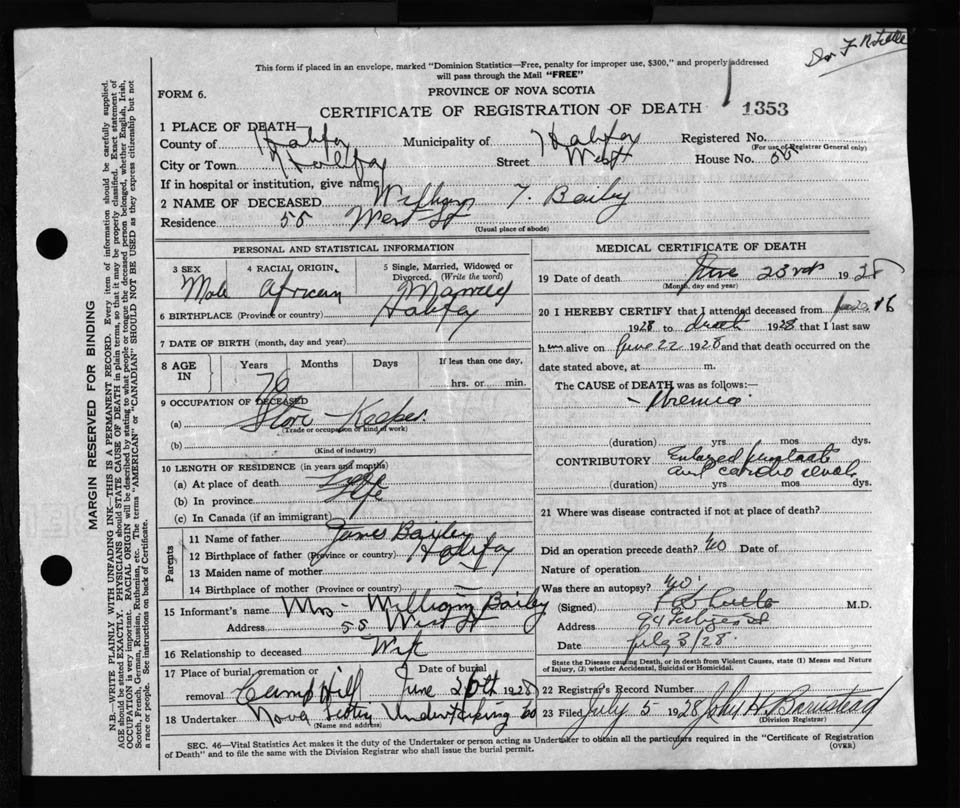 This form if placed in an envelope, marked "Dominion Statistics—Free, penalty for improper use, $300," and properly addressed
will pass through the Mail "FREE"
FORM 6.
PROVINCE OF NOVA SCOTIA
CERTIFICATE OF REGISTRATION OF DEATH 1353
1 PLACE OF DEATH—
County of Halifax Municipality of Halifax Registered No.
(For use of Registrar General only)
City or Town Halifax Street West House No. 55
If in hospital or institution, give name
2 NAME OF DECEASED William T. Bailey
Residence 55 West St
(Usual place of abode)
PERSONAL AND STATISTICAL INFORMATION
3 SEX 4 RACIAL ORIGIN 5 Single, Married, Widowed or
Divorced. (Write the word)
Male African Married
6 BIRTHPLACE (Province or country) Halifax
7 DATE OF BIRTH (month, day and year)
8 AGE IN Years Months Days If less than one day,
76 hrs. or min.
9 OCCUPATION OF DECEASED
(a) Store Keeper
(Trade or occupation or kind of work)
(b)
(Kind of industry)
10 LENGTH OF RESIDENCE (in years and months)
(a) At place of death Life
(b) In province Life
(c) In Canada (if an immigrant)
Parents
11 Name of father James Bailey
12 Birthplace of father (Province or country) Halifax
13 Maiden name of mother
14 Birthplace of mother (Province or country)
15 Informant's name Mrs - William Bailey
Address 55 West St
16 Relationship to deceased Wife
17 Place of burial, cremation or Date of burial
removal Camp Hill June 26th 1928
18 Undertaker Nova Scotia Undertaking Co
(Name and address)
MEDICAL CERTIFICATE OF DEATH
19 Date of death June 23rd 1928
(Month, day and year)
20 I HEREBY CERTIFY that I attended deceased from 16
1928 to death 1928 that I last saw
him alive on June 22 1928 and that death occurred on the
date stated above, at m.
The CAUSE of DEATH was as follows:—
- Uremia
(duration) yrs mos dys.
CONTRIBUTORY Enlarged prostate
and cardio renal
(duration) yrs mos dys.
21 Where was disease contracted if not at place of death?
Did an operation precede death? No Date of
Nature of operation
Was there an autopsy? No
(Signed) M.D.
Address 94
Date July 3/28.
State the Disease causing Death, or in death from Violent Causes, state (1) Means and Nature
of Injury, (2) whether Accidental, Suicidal or Homicidal.
22 Registrar's Record Number
23 Filed July 5 1928 John H. Barnstead
(Division Registrar)
SEC. 46—Vital Statistics Act makes it the duty of the Undertaker or person acting as Undertaker to obtain all the particulars required in the "Certificate of Registration
of Death" and to file the same with the Division Registrar who shall issue the burial permit. (OVER)
MARGIN RESERVED FOR BINDING
N.B.—WRITE PLAINLY WITH UNFADING INK—THIS IS A PERMANENT RECORD. Every item of information should be carefully supplied.
AGE should be stated EXACTLY. PHYSICIANS should STATE CAUSE OF DEATH in plain terms, so that it may be properly classified. Exact statement of
OCCUPATION is very important. RACIAL ORIGIN will be described by stating to what people or tongue the deceased person belonged, whether English, Irish,
Scotch, French, German, Russian, Ruthenian, etc. The terms "AMERICAN" or "CANADIAN" SHOULD NOT BE USED as they express citizenship but not
a race or people. See instructions on back of Certificate.